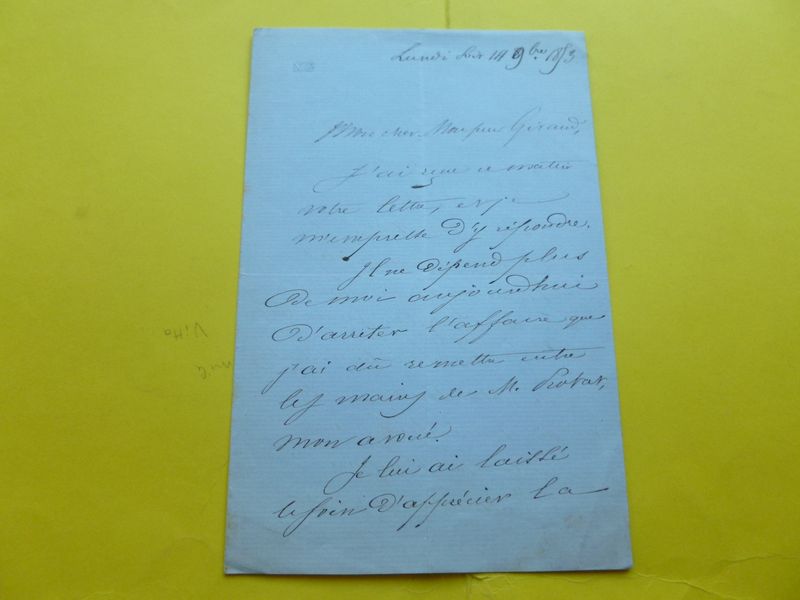 Lundi soir 14 9bre 1853
Mon cher Monsieur Giraud,
J'ai reçu ce matin
votre lettre, et je
m'empresse d'y répondre.
Il ne dépend plus
de moi aujourd'hui
d'arrêter l'affaire que
j'ai dû remettre entre
les mains de M.
mon avoué.
Je lui ai laissé
le soin d'apprécier la